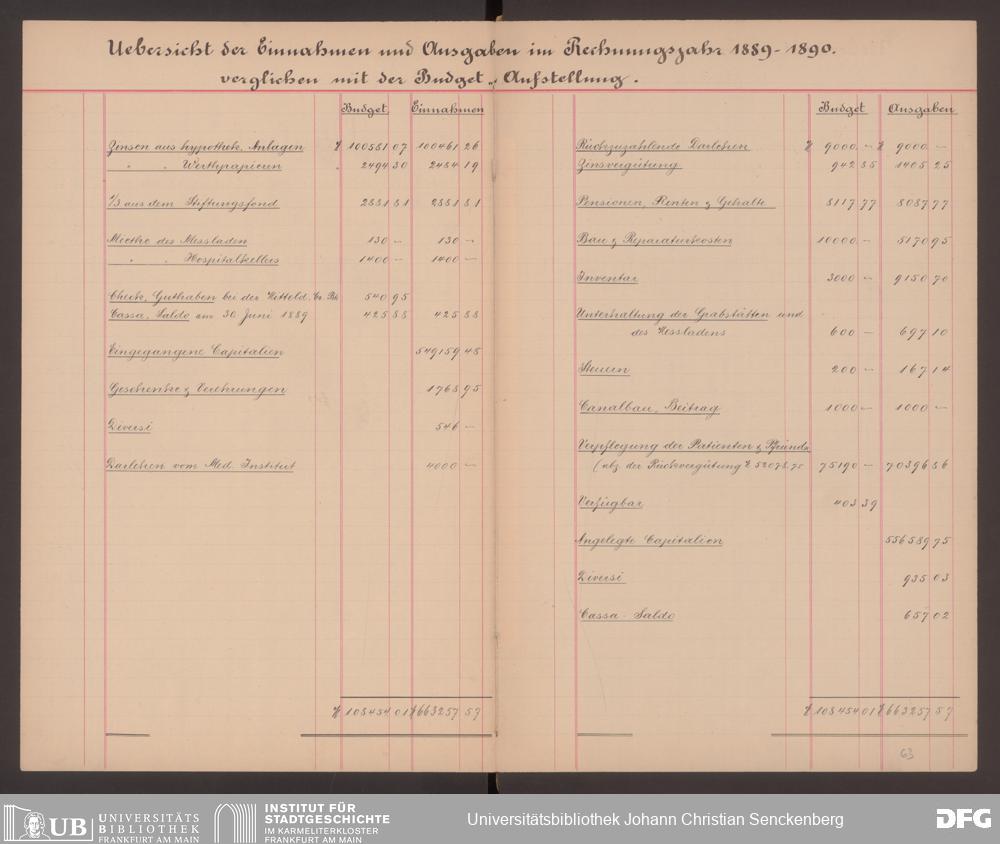 Uebersicht der Einnahmen und Ausgaben im Rechnungsjahr 1889-1890.
verglichen mit der Budget-Aufstellung.
Budget Einnahmen
Zinsen aus hypothek. Anlagen ℳ 100581 07 100461 26
" " Werthpapieren " 2494 30 2484 19
1/3 aus dem Stiftungsfond 2881 81 2881 81
Miethe des Messladen 130 — 130 —
" " Hospitalkellers 1400 — 1400 —
Check, Guthaben bei der Mitteld. Cr. Bk 540 95
Cassa, Saldo am 30. Juni 1889 425 88 425 88
Eingegangene Capitalien 549159 48
Geschenke & Verehrungen 1768 95
Diversi 546 —
Darlehen vom Med. Institut 4000 —
ℳ 108454 01 ℳ 663257 57
Budget Ausgaben
Rückzuzahlende Darlehen ℳ 9000 — ℳ 9000 —
Zinsvergütung 942 85 1405 25
Pensionen, Renten & Gehalte 8117 77 8087 77
Bau & Reparaturkosten 10000 — 5170 95
Inventar 3000 — 9150 70
Unterhaltung der Grabstätten und
des Messladens 600 — 697 10
Steuern 200 — 167 14
Canalbau, Beitrag 1000 — 1000 —
Verpflegung der Patienten & Pfründn.
(abz. der Rückvergütung ℳ 52078.75 75190 — 70396 86
Verfügbar 403 39
Angelegte Capitalien 556589 75
Diversi 935 03
Cassa-Saldo 657 02
ℳ 108454 01 ℳ 663257 57
63
UB UNIVERSITÄTS
BIBLIOTHEK
FRANKFURT AM MAIN
INSTITUT FÜR
STADTGESCHICHTE
IM KARMELITERKLOSTER
FRANKFURT AM MAIN
Universitätsbibliothek Johann Christian Senckenberg
DFG